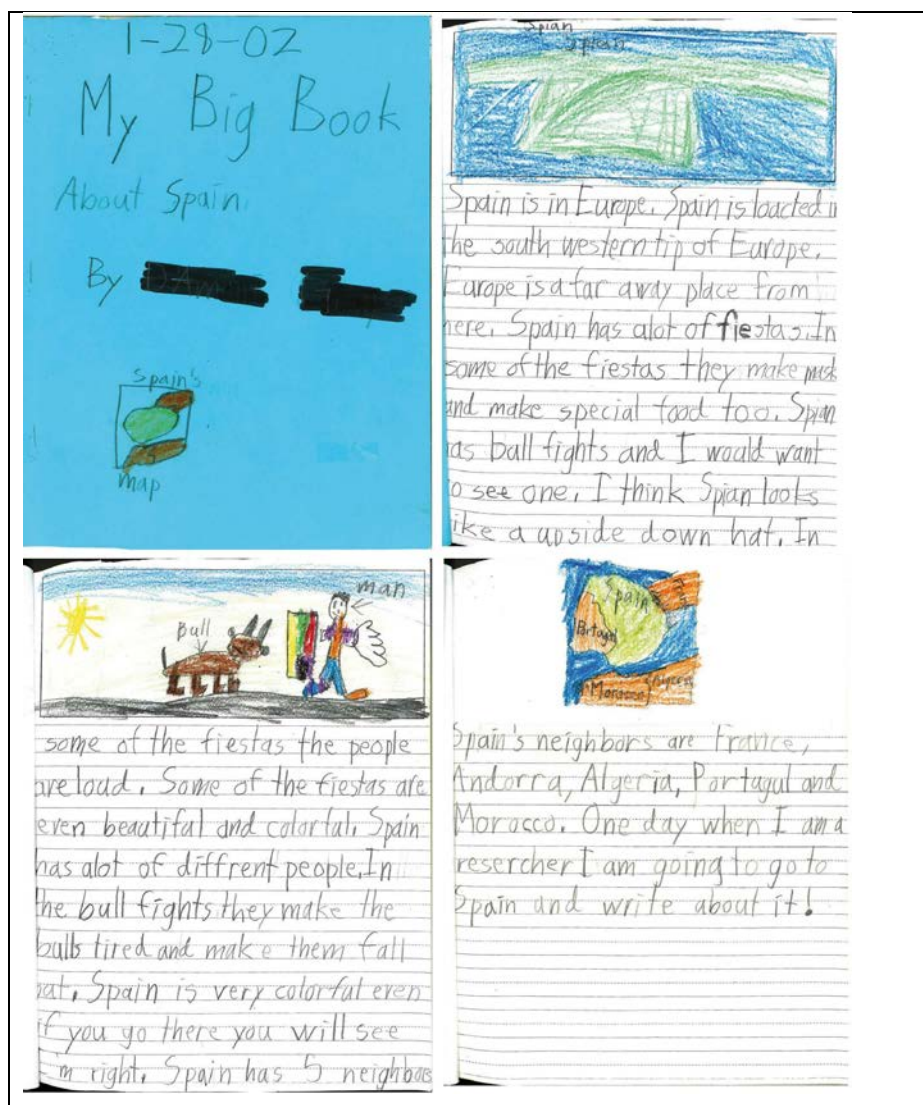 1-28-02
My Big Book
About Spain
By
Spain's
map
Spian
Spian
Spain is in Europe. Spain is loacted in
the south western tip of Europe.
Europe is a far away place from
here. Spain has alot of fiestas. In
some of the fiestas they make mask
and make special food too. Spian
has bull fights and I would want
to see one. I think Spian looks
like a upside down hat. In
man
Bull
some of the fiestas the people
are loud. Some of the fiestas are
even beautiful and colorful. Spain
has alot of diffrent people. In
the bull fights they make the
bulls tired and make them fall
out. Spain is very colorful even
if you go there you will see
I'm right. Spain has 5 neighbors
Spain
Portugal
Morocco
Spain's neighbors are France,
Andorra, Algeria, Portagul and
Morocco. One day when I am a
resercher I am going to go to
Spain and write about it!